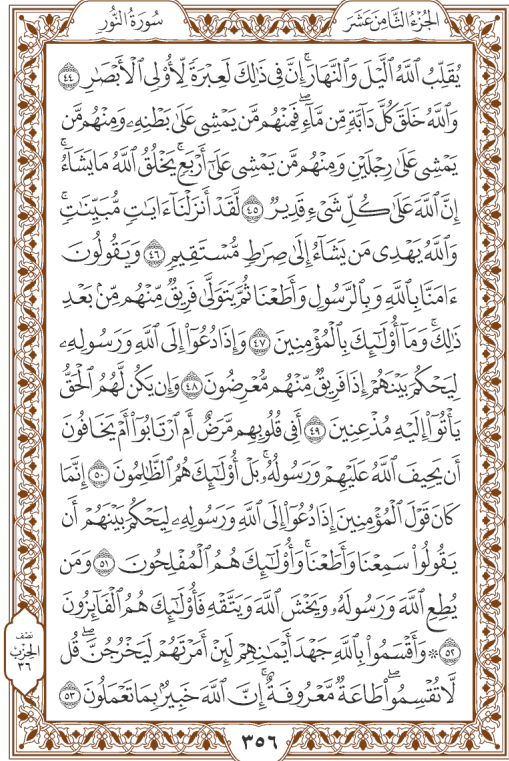 الجُزْءُ الثَّامِنَ عَشَرَ
سُورَةُ النُّورِ
يُقَلِّبُ ٱللَّهُ ٱلَّيۡلَ وَٱلنَّهَارَۚ إِنَّ فِي ذَٰلِكَ لَعِبۡرَةٗ لِّأُوْلِي ٱلۡأَبۡصَٰرِ ٤٤
وَٱللَّهُ خَلَقَ كُلَّ دَآبَّةٖ مِّن مَّآءٖۖ فَمِنۡهُم مَّن يَمۡشِي عَلَىٰ بَطۡنِهِۦ وَمِنۡهُم مَّن
يَمۡشِي عَلَىٰ رِجۡلَيۡنِ وَمِنۡهُم مَّن يَمۡشِي عَلَىٰٓ أَرۡبَعٖۚ يَخۡلُقُ ٱللَّهُ مَا يَشَآءُۚ
إِنَّ ٱللَّهَ عَلَىٰ كُلِّ شَيۡءٖ قَدِيرٞ ٤٥ لَّقَدۡ أَنزَلۡنَآ ءَايَٰتٖ مُّبَيِّنَٰتٖۚ
وَٱللَّهُ يَهۡدِي مَن يَشَآءُ إِلَىٰ صِرَٰطٖ مُّسۡتَقِيمٖ ٤٦ وَيَقُولُونَ
ءَامَنَّا بِٱللَّهِ وَبِٱلرَّسُولِ وَأَطَعۡنَا ثُمَّ يَتَوَلَّىٰ فَرِيقٞ مِّنۡهُم مِّنۢ بَعۡدِ
ذَٰلِكَۚ وَمَآ أُوْلَٰٓئِكَ بِٱلۡمُؤۡمِنِينَ ٤٧ وَإِذَا دُعُوٓاْ إِلَى ٱللَّهِ وَرَسُولِهِۦ
لِيَحۡكُمَ بَيۡنَهُمۡ إِذَا فَرِيقٞ مِّنۡهُم مُّعۡرِضُونَ ٤٨ وَإِن يَكُن لَّهُمُ ٱلۡحَقُّ
يَأۡتُوٓاْ إِلَيۡهِ مُذۡعِنِينَ ٤٩ أَفِي قُلُوبِهِم مَّرَضٌ أَمِ ٱرۡتَابُوٓاْ أَمۡ يَخَافُونَ
أَن يَحِيفَ ٱللَّهُ عَلَيۡهِمۡ وَرَسُولُهُۥۚ بَلۡ أُوْلَٰٓئِكَ هُمُ ٱلظَّٰلِمُونَ ٥٠ إِنَّمَا
كَانَ قَوۡلَ ٱلۡمُؤۡمِنِينَ إِذَا دُعُوٓاْ إِلَى ٱللَّهِ وَرَسُولِهِۦ لِيَحۡكُمَ بَيۡنَهُمۡ أَن
يَقُولُواْ سَمِعۡنَا وَأَطَعۡنَاۚ وَأُوْلَٰٓئِكَ هُمُ ٱلۡمُفۡلِحُونَ ٥١ وَمَن
يُطِعِ ٱللَّهَ وَرَسُولَهُۥ وَيَخۡشَ ٱللَّهَ وَيَتَّقۡهِ فَأُوْلَٰٓئِكَ هُمُ ٱلۡفَآئِزُونَ
٥٢ ۞ وَأَقۡسَمُواْ بِٱللَّهِ جَهۡدَ أَيۡمَٰنِهِمۡ لَئِنۡ أَمَرۡتَهُمۡ لَيَخۡرُجُنَّۖ قُل
لَّا تُقۡسِمُواْۖ طَاعَةٞ مَّعۡرُوفَةٌۚ إِنَّ ٱللَّهَ خَبِيرُۢ بِمَا تَعۡمَلُونَ ٥٣
نصف
الحِزْبُ
٣٦
٣٥٦